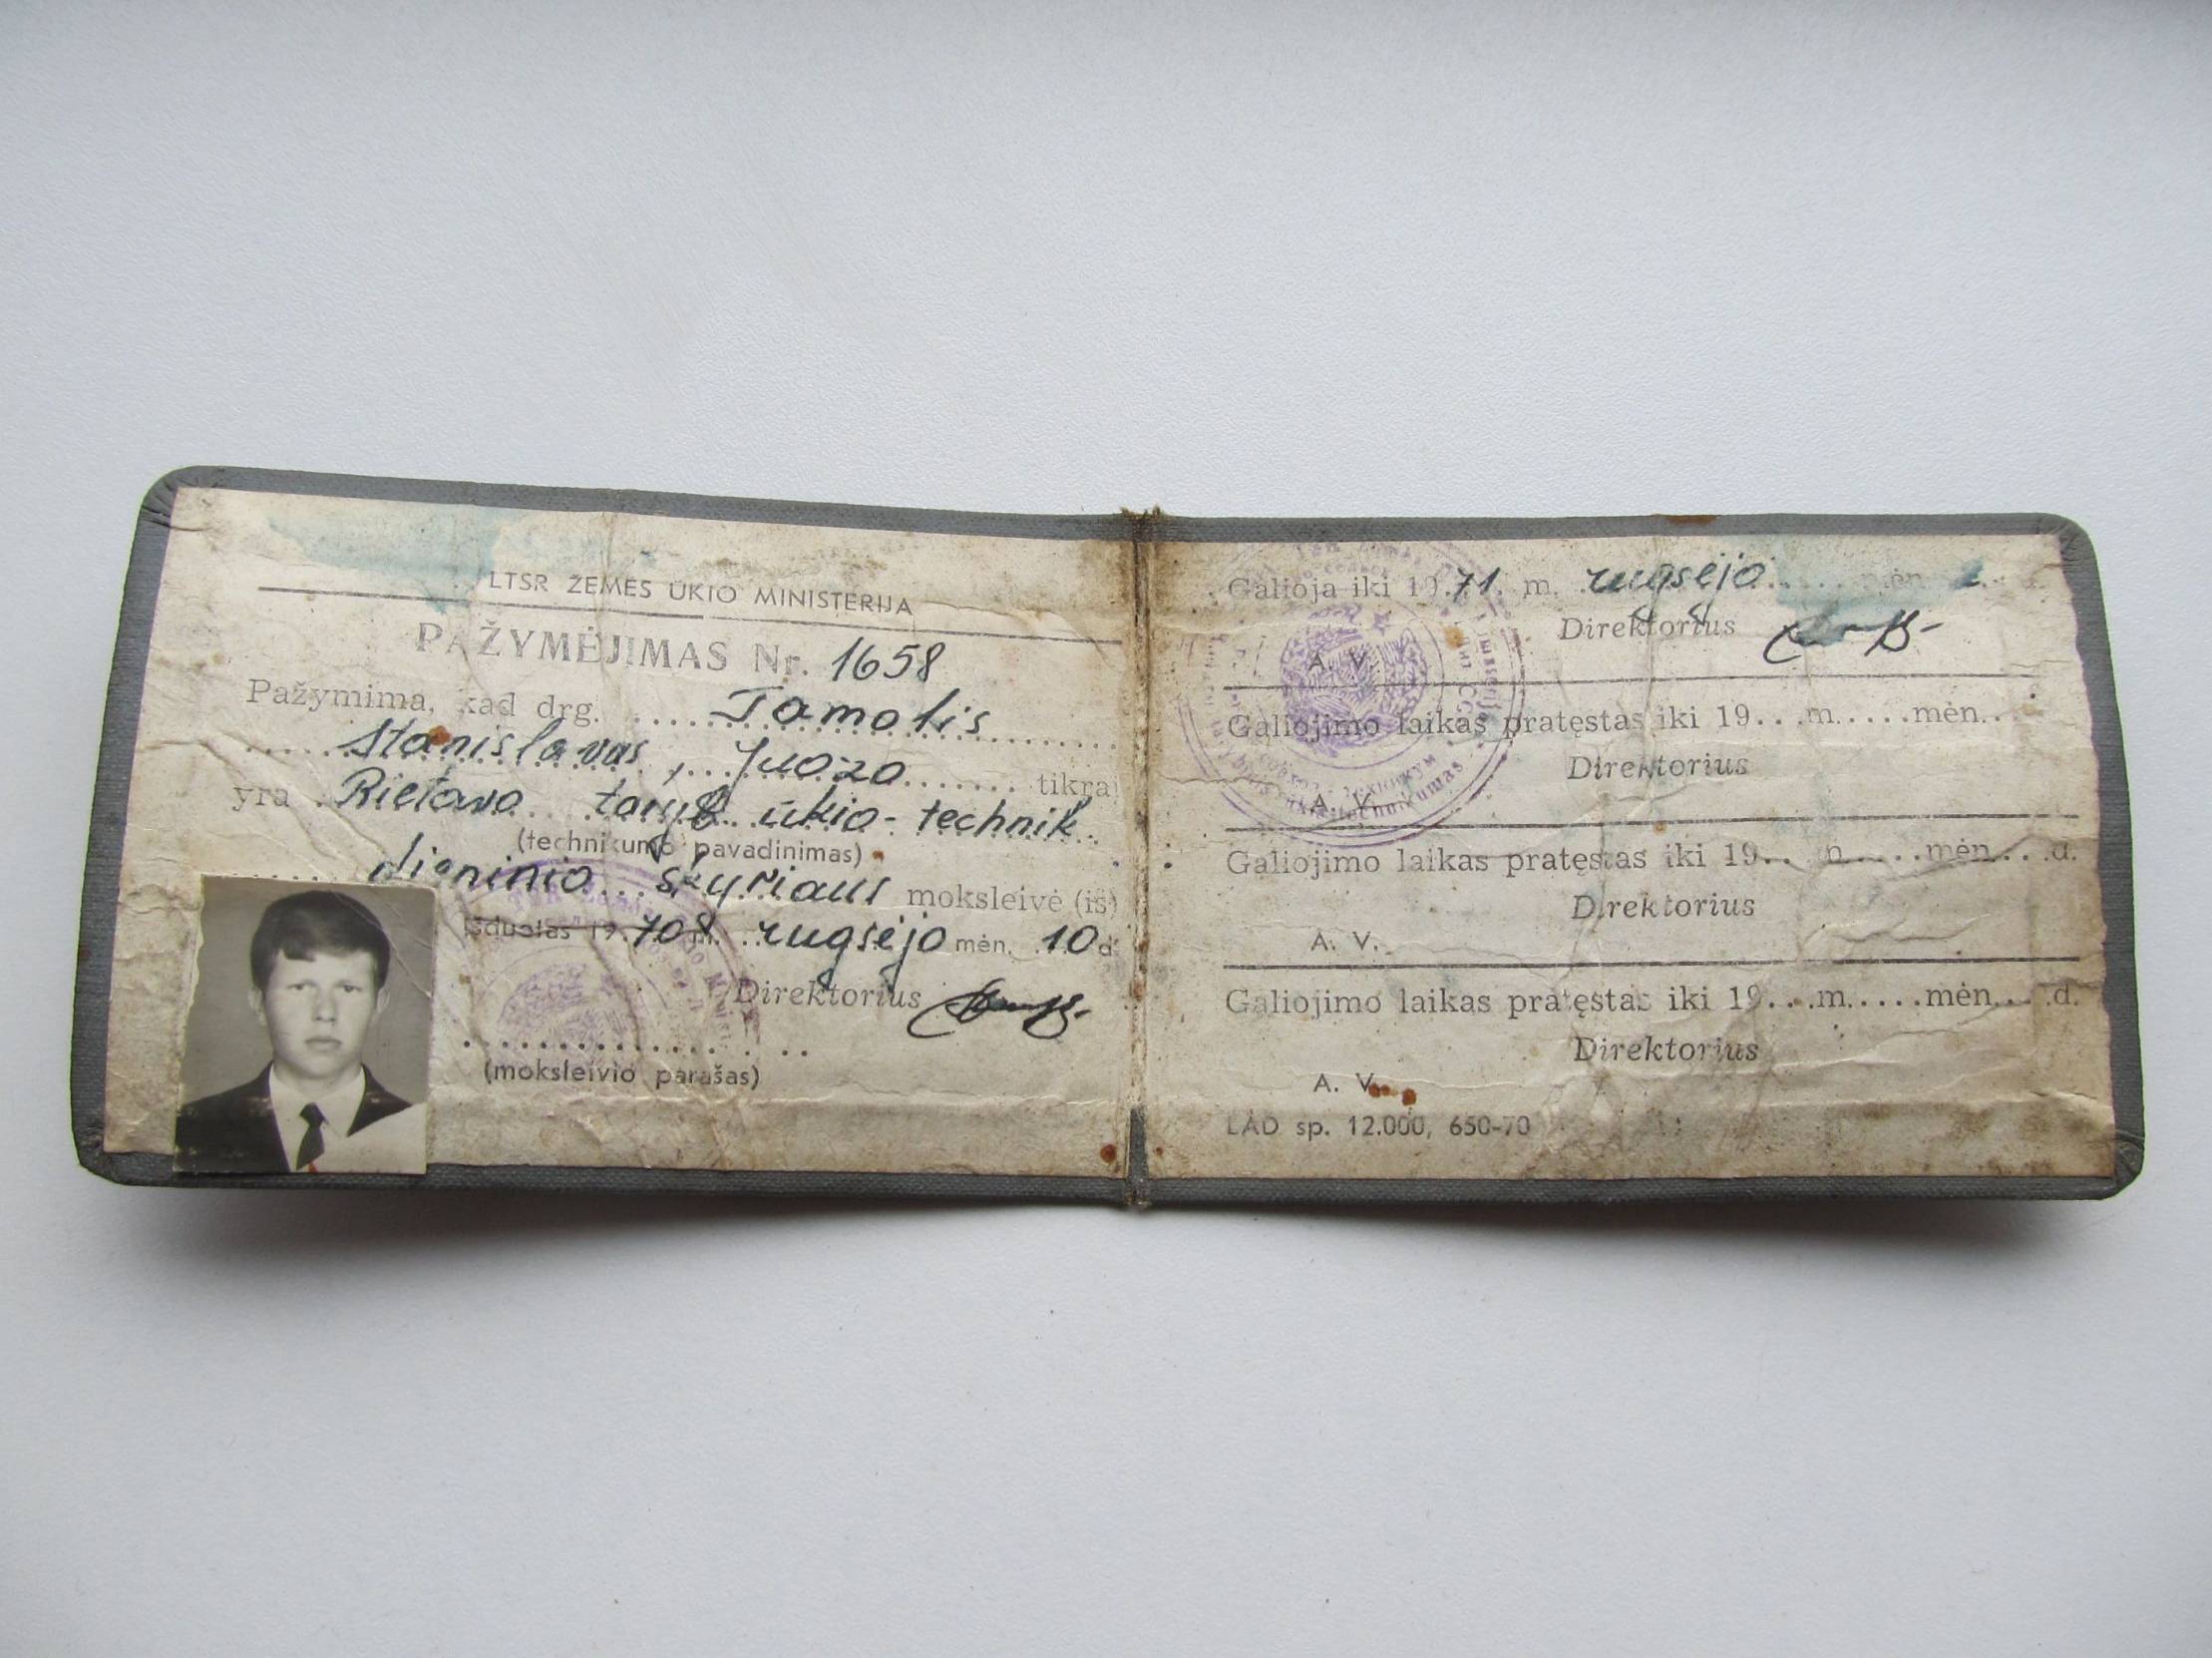 LTSR ŽEMĖS ŪKIO MINISTERIJA
PAŽYMĖJIMAS Nr. 1658
Pažymima, kad drg. Jamolis
Stanislavas, Juozo tikrai
yra Rietavo taryb. ūkio-technik.
(technikumo pavadinimas)
dieninio skyriaus moksleivė (is)
Išduotas 1970 m. rugsėjo mėn. 10 d.
Direktorius
(moksleivio parašas)
Galioja iki 1971 m. rugsėjo mėn. d.
Direktorius
A. V.
Galiojimo laikas pratęstas iki 19...m.....mėn...
Direktorius
A. V.
Galiojimo laikas pratęstas iki 19...m.....mėn...d.
Direktorius
A. V.
Galiojimo laikas pratęstas iki 19...m.....mėn...d.
Direktorius
A. V.
LAD sp. 12.000, 650-70